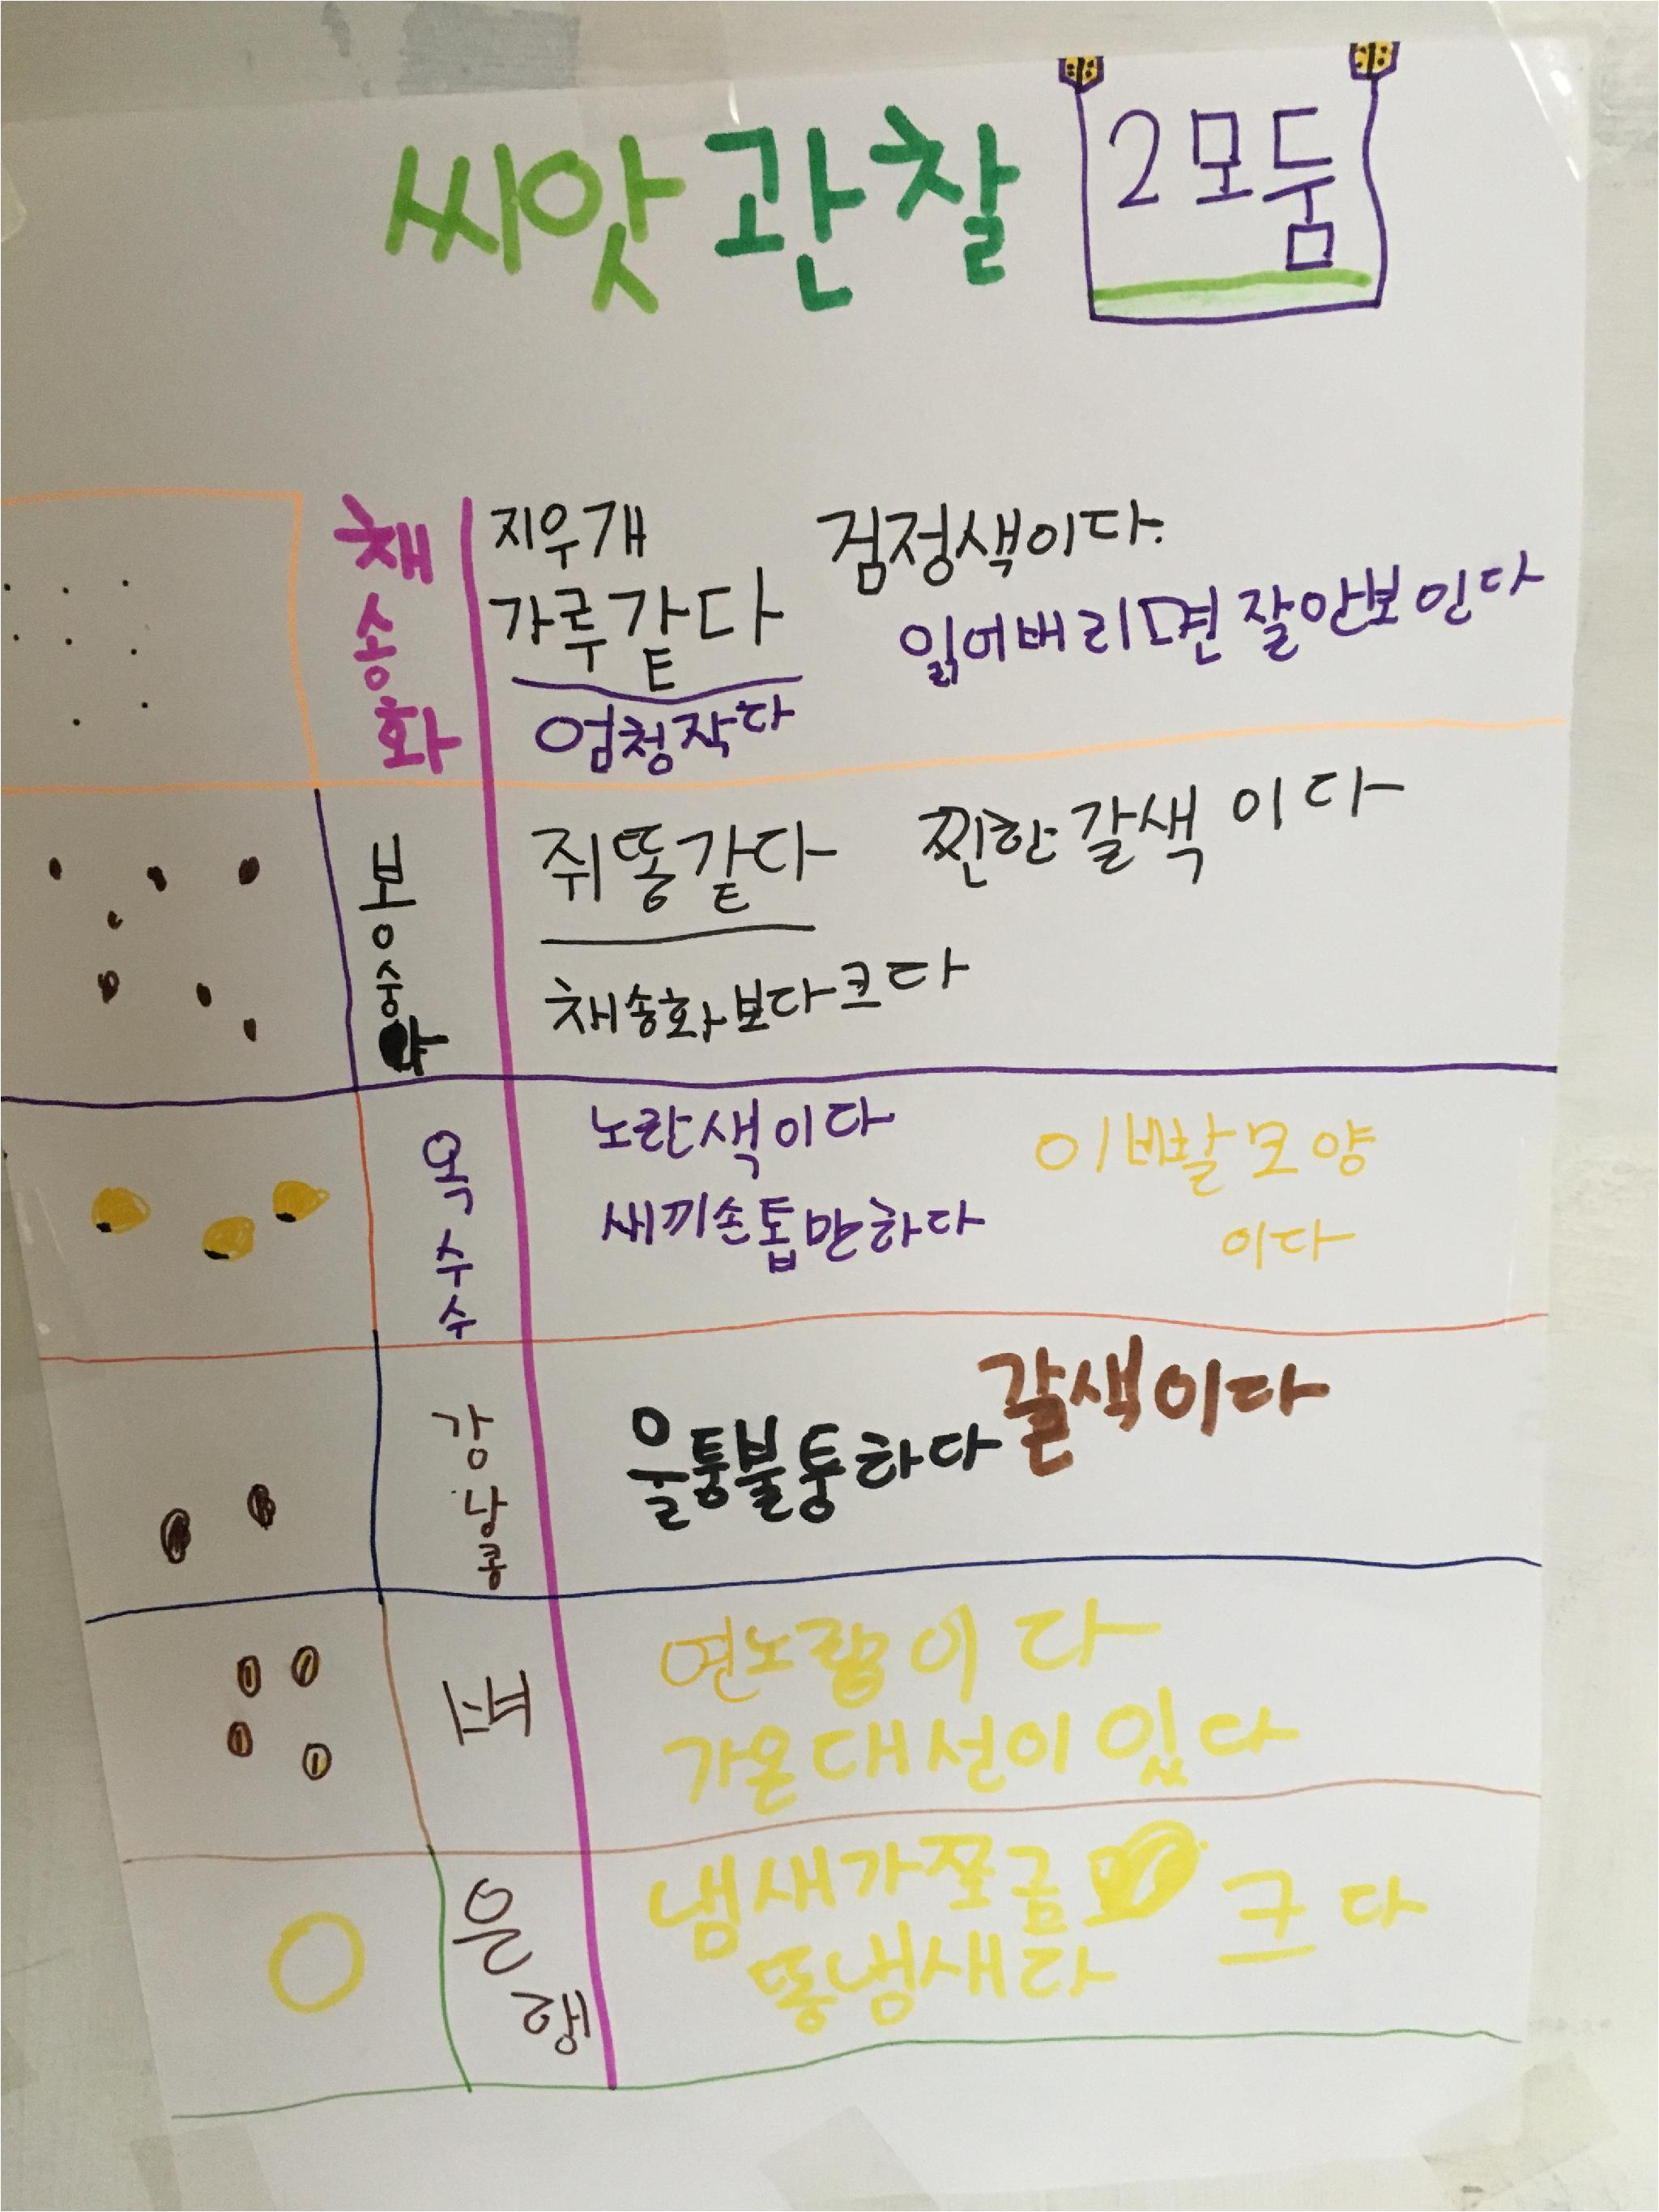 씨앗 관찰
2모둠
채송화
지우개
가루같다
엄청작다
검정색이다.
잃어버리면 잘안보인다
봉숭아
쥐똥같다
찐한갈색이다
채송화보다크다
옥수수
노란색이다
새끼손톱만하다
이빨모양
이다
강낭콩
울퉁불퉁하다
갈색이다
벼
연노랑이다
가온대선이있다
은행
냄새가쪼금
똥냄새라
크다